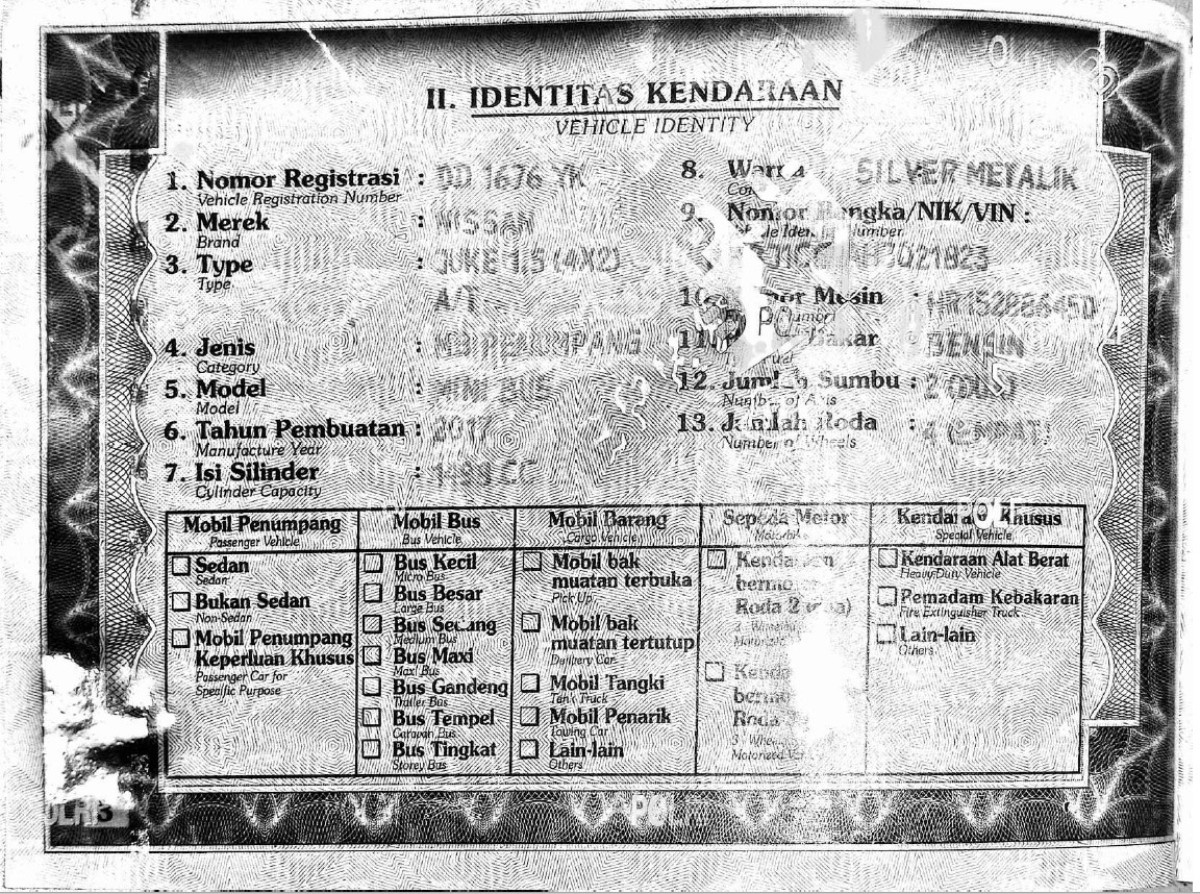 II. IDENTITAS KENDARAAN
VEHICLE IDENTITY
1. Nomor Registrasi : DD 1676 YK
Vehicle Registration Number
2. Merek : NISSAN
Brand
3. Type : JUKE 1,5 (4X2)
Type
A/T
4. Jenis :
Category
5. Model : MINI BUS
Model
6. Tahun Pembuatan : 2017
Manufacture Year
7. Isi Silinder : 1498 CC
Cylinder Capacity
8. Warna SILVER METALIK
9. Nomor Rangka/NIK/VIN :
10. Mesin :
11. Bakar : BENSIN
12. Jumlah Sumbu : 2 (DUA)
Number of Axis
13. Jumlah Roda : 4 (EMPAT)
Number of Wheels
Mobil Penumpang
Passenger Vehicle
Sedan
Sedan
Bukan Sedan
Non-Sedan
Mobil Penumpang
Keperluan Khusus
Passenger Car for
Specific Purpose
Mobil Bus
Bus Vehicle
Bus Kecil
Micro Bus
Bus Besar
Large Bus
Bus Sedang
Medium Bus
Bus Maxi
Maxi Bus
Bus Gandeng
Trailer Bus
Bus Tempel
Caravan Bus
Bus Tingkat
Storey Bus
Mobil Barang
Cargo Vehicle
Mobil bak
muatan terbuka
Pick Up
Mobil bak
muatan tertutup
Delivery Car
Mobil Tangki
Tank Truck
Mobil Penarik
Towing Car
Lain-lain
Others
Sepeda Motor
Motorbike
Kendaraan
bermotor
Roda 2
Roda
Kendaraan Khusus
Special Vehicle
Kendaraan Alat Berat
Heavy Duty Vehicle
Pemadam Kebakaran
Fire Extinguisher Truck
Lain-lain
Others